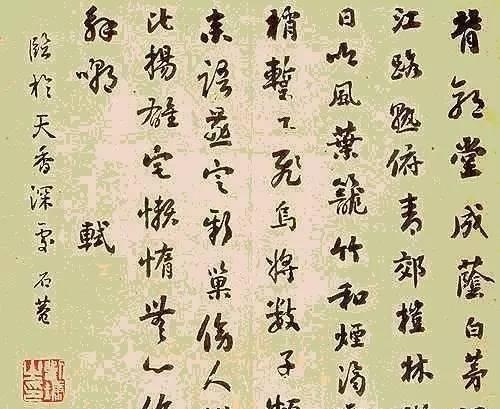 背郭堂成蔭白茅
江路熟俯青郊榿林
日吟風葉籠竹和煙滴
梢暫止飛烏將數子頻
來語燕定新巢傍人
比揚雄宅懶惰無心作
解嘲 軾
臨於天香深處 石菴